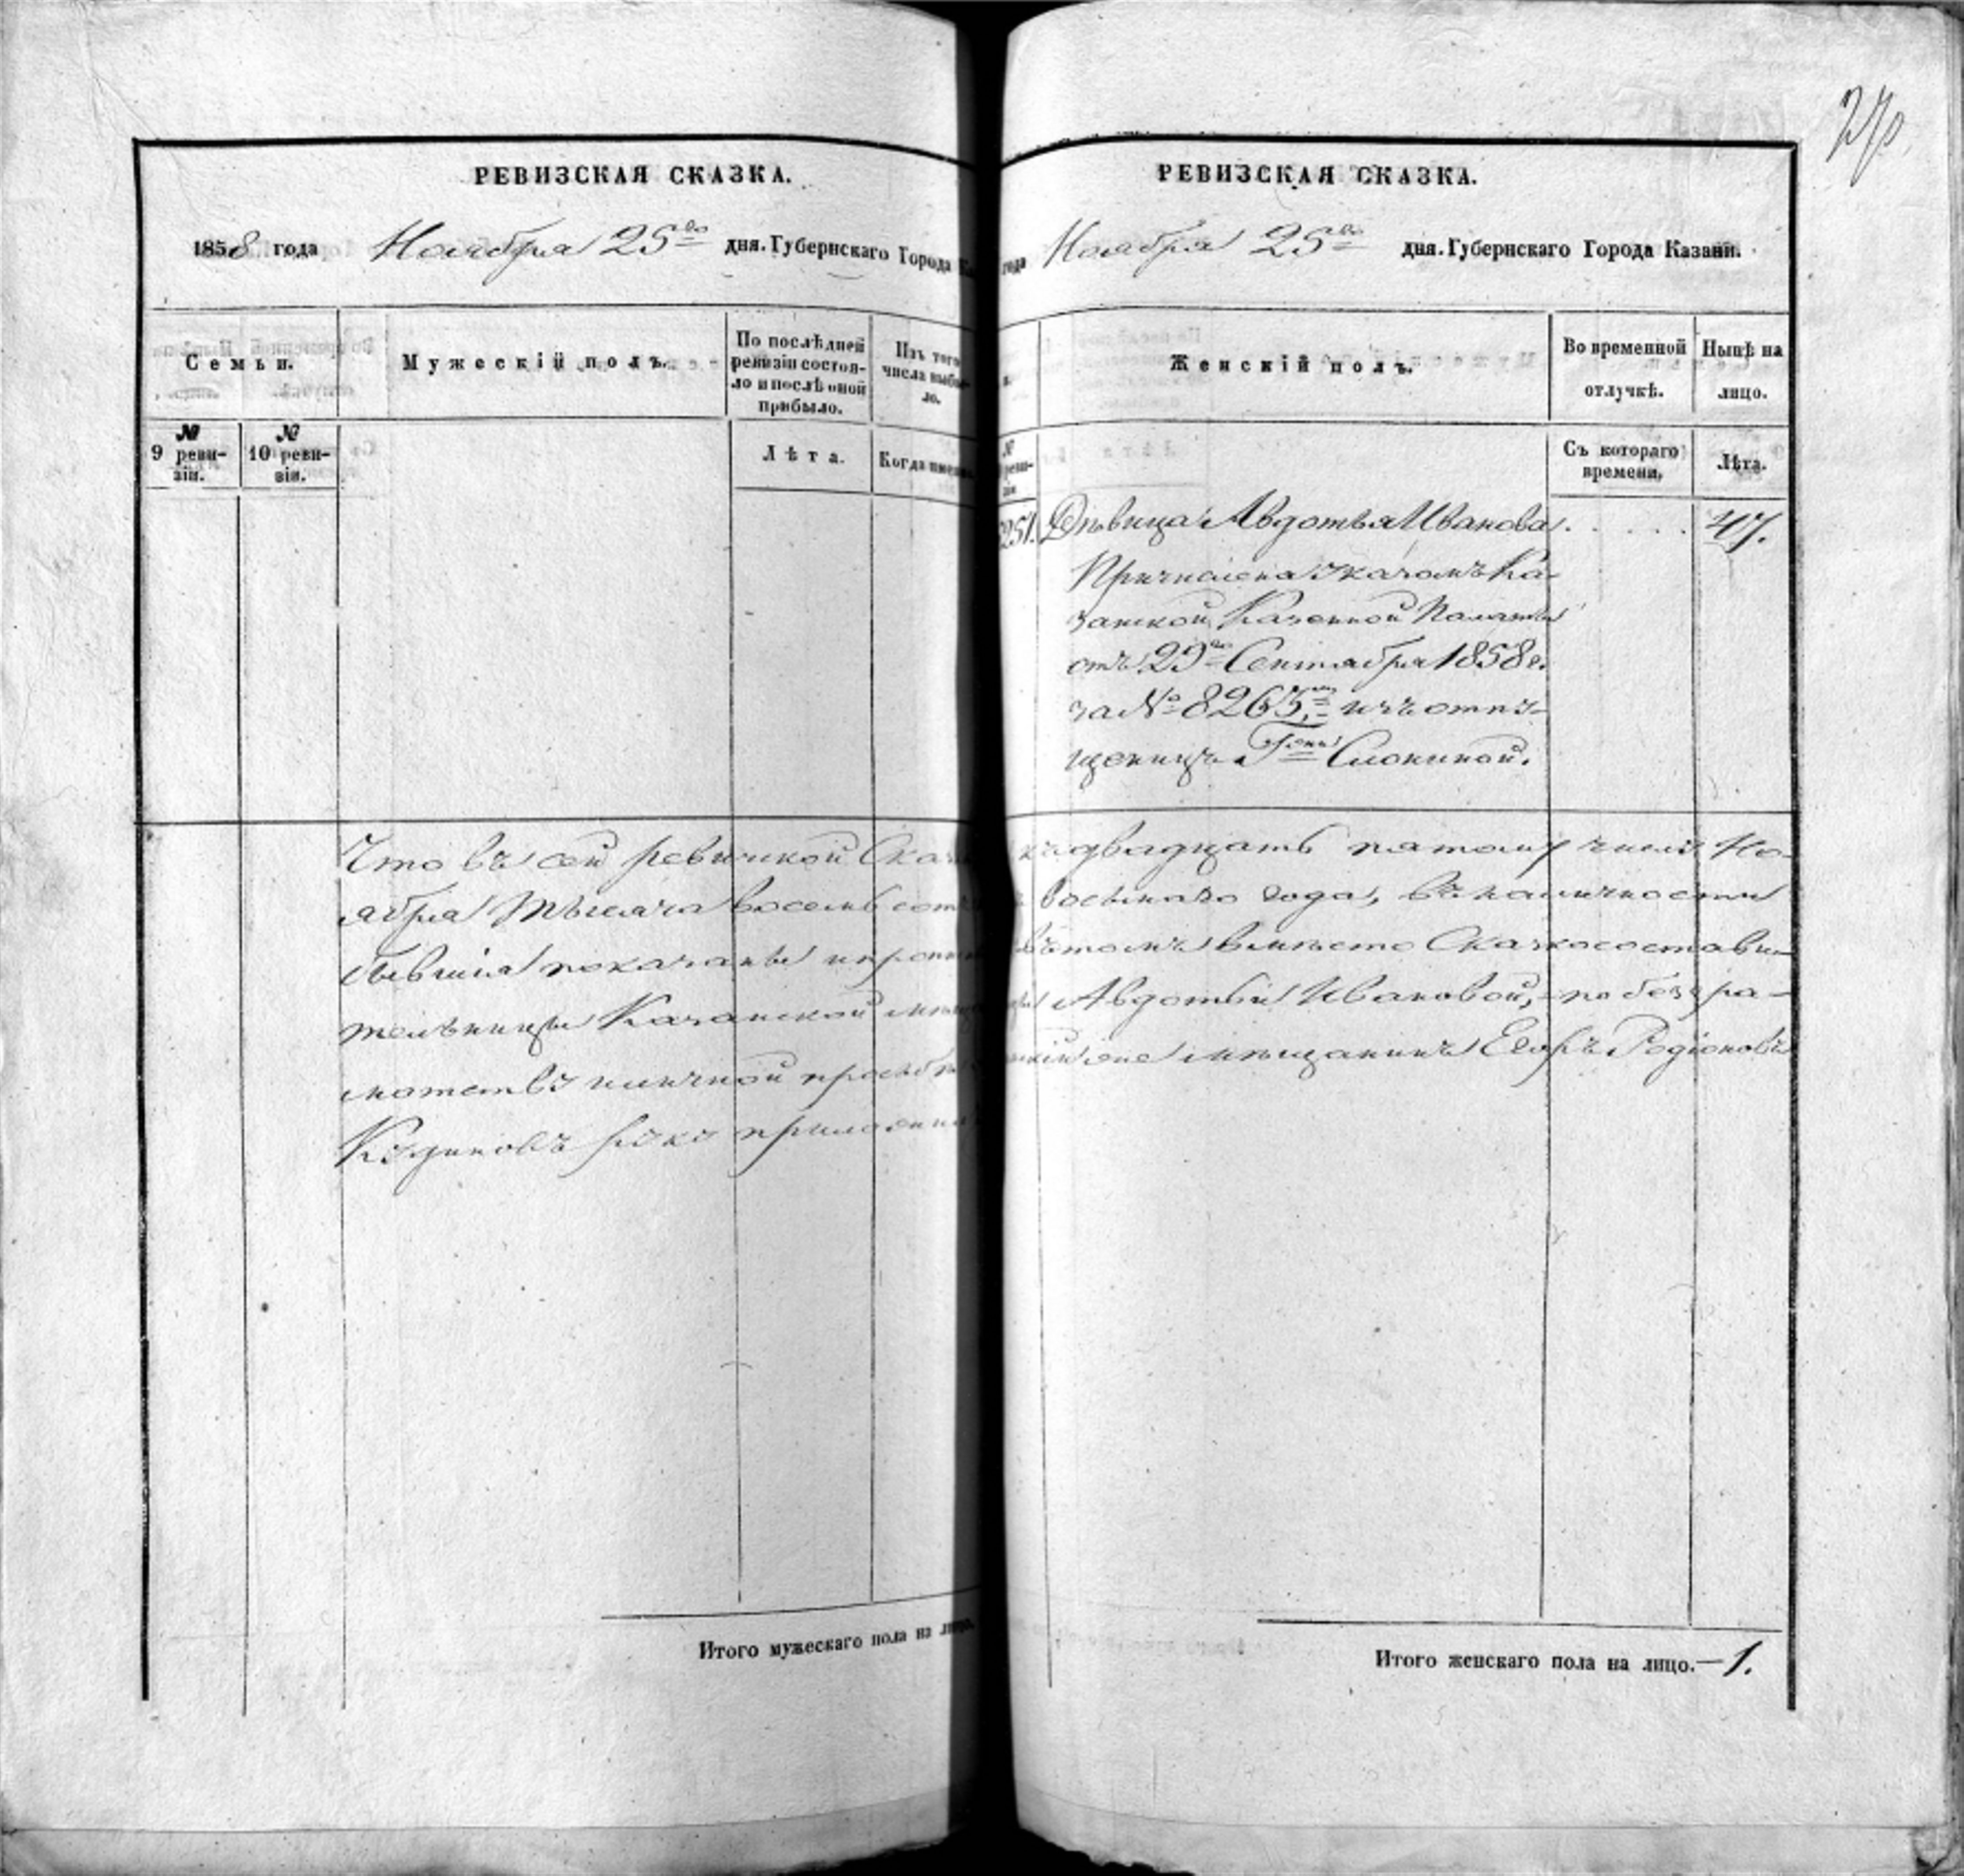 270
РЕВИЗСКАЯ СКАЗКА.
1858 года Ноября 25го дня. Губернскаго Города
Семьи.
Мужескій полъ.
По послѣдней ревизіи состояло и послѣ оной прибыло.
Изъ того числа выбыло.
№ 9 ревизіи.
№ 10 ревизіи.
Лѣта.
Когда именно
Что въ сей ревизской
ября Тысяча восемь сотъ
бывшія показаны и
тельницы Казанской
мотству и личной прозьбѣ
руку приложилъ
Итого мужескаго пола на лицо.
РЕВИЗСКАЯ СКАЗКА.
года Ноября 25го дня. Губернскаго Города Казани.
Женскій полъ.
Во временной отлучкѣ.
Нынѣ на лицо.
Съ котораго времени.
Лѣта.
251. Дѣвица Авдотья Иванова . . . . . 47.
Причислена указомъ Ка-
занской Казенной Палаты
отъ 29го Сентября 1858 г.
за № 8265, изъ отпу-
щеницъ Г-жи
къ двадцать пятому числу Но-
восьмаго года, въ наличности
вмѣсто Сказкосостави-
Авдотьи Ивановой, по безгра-
мѣщанинъ Егоръ Родіоновъ
Итого женскаго пола на лицо.—1.